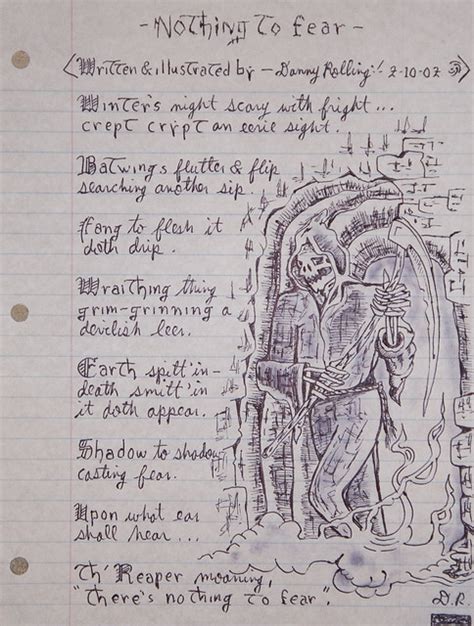 - Nothing to fear -
Written & illustrated by - Danny Rolling! 2-10-02
Winter's night scary with fright...
crept crypt an eerie sight.
Batwings flutter & flip
searching another sip.
Fang to flesh it
doth drip.
Wraithing thing
grim-grinning a
devilish leer.
Earth spitt'in-
death smitt'in
it doth appear.
Shadow to shadow
casting fear.
Upon what ear
shall hear...
Th' Reaper moaning,
"There's nothing to fear".
D.R.